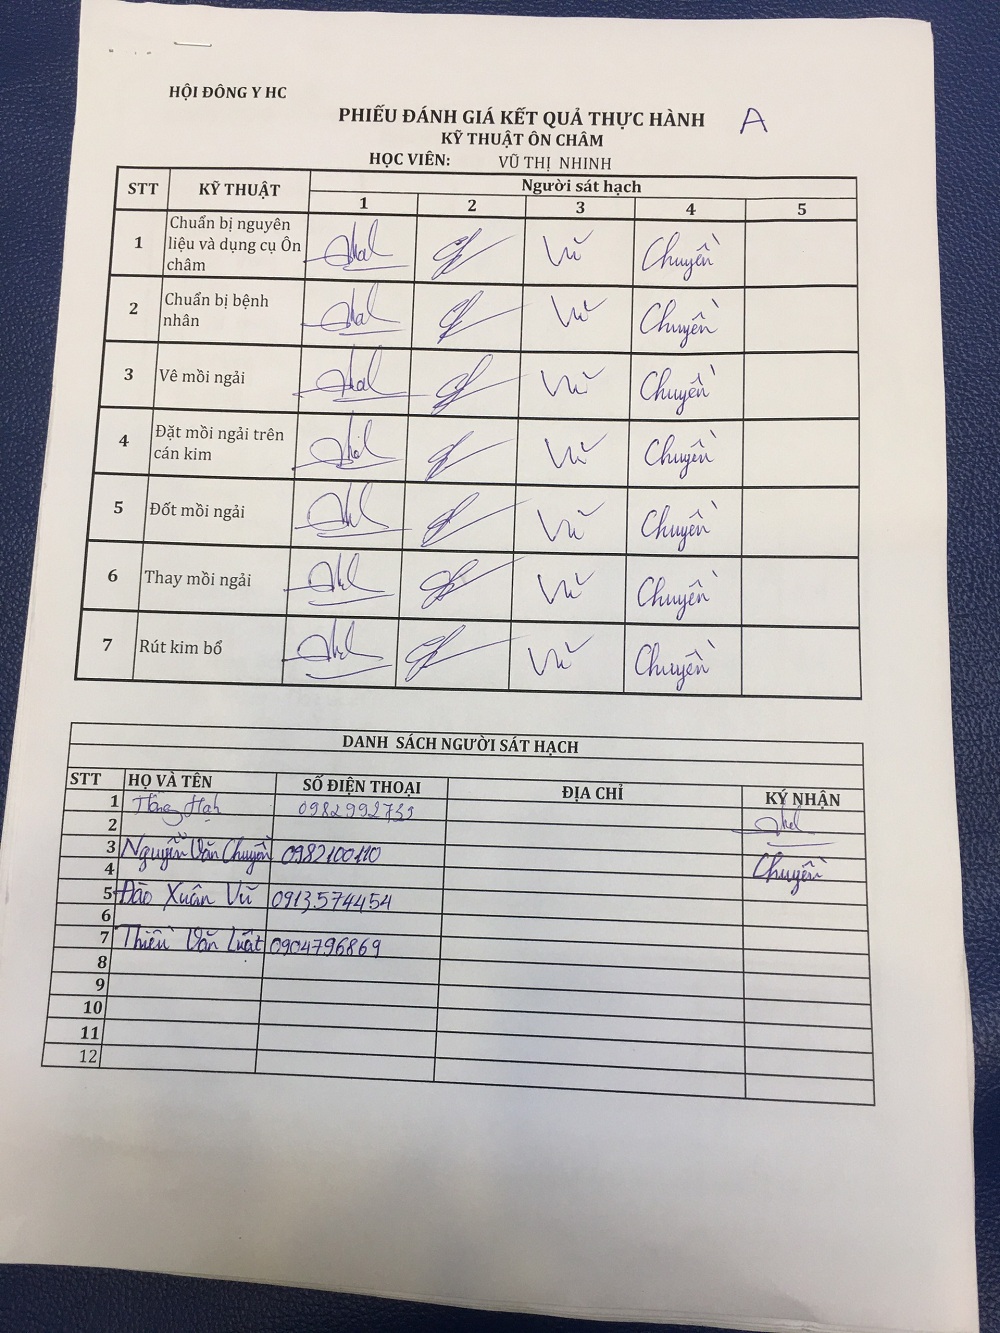 HỘI ĐÔNG Y HC
PHIẾU ĐÁNH GIÁ KẾT QUẢ THỰC HÀNH A
KỸ THUẬT ÔN CHÂM
HỌC VIÊN: VŨ THỊ NHINH
STT KỸ THUẬT Người sát hạch
1 2 3 4 5
1 Chuẩn bị nguyên liệu và dụng cụ Ôn châm Vũ Chuyền
2 Chuẩn bị bệnh nhân Vũ Chuyền
3 Vê mồi ngải Vũ Chuyền
4 Đặt mồi ngải trên cán kim Vũ Chuyền
5 Đốt mồi ngải Vũ Chuyền
6 Thay mồi ngải Vũ Chuyền
7 Rút kim bổ Vũ Chuyền
DANH SÁCH NGƯỜI SÁT HẠCH
STT HỌ VÀ TÊN SỐ ĐIỆN THOẠI ĐỊA CHỈ KÝ NHẬN
1 Hồng Hạh 0982992733
2
3 Nguyễn Văn Chuyền 0982100110 Chuyền
4
5 Đào Xuân Vũ 0913574454
6
7 Thiều Văn Luật 0904796869
8
9
10
11
12